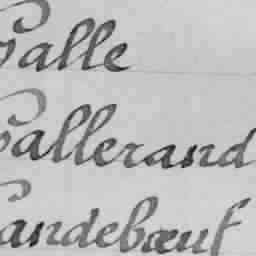 Galle
Gallerand
Gandebœuf